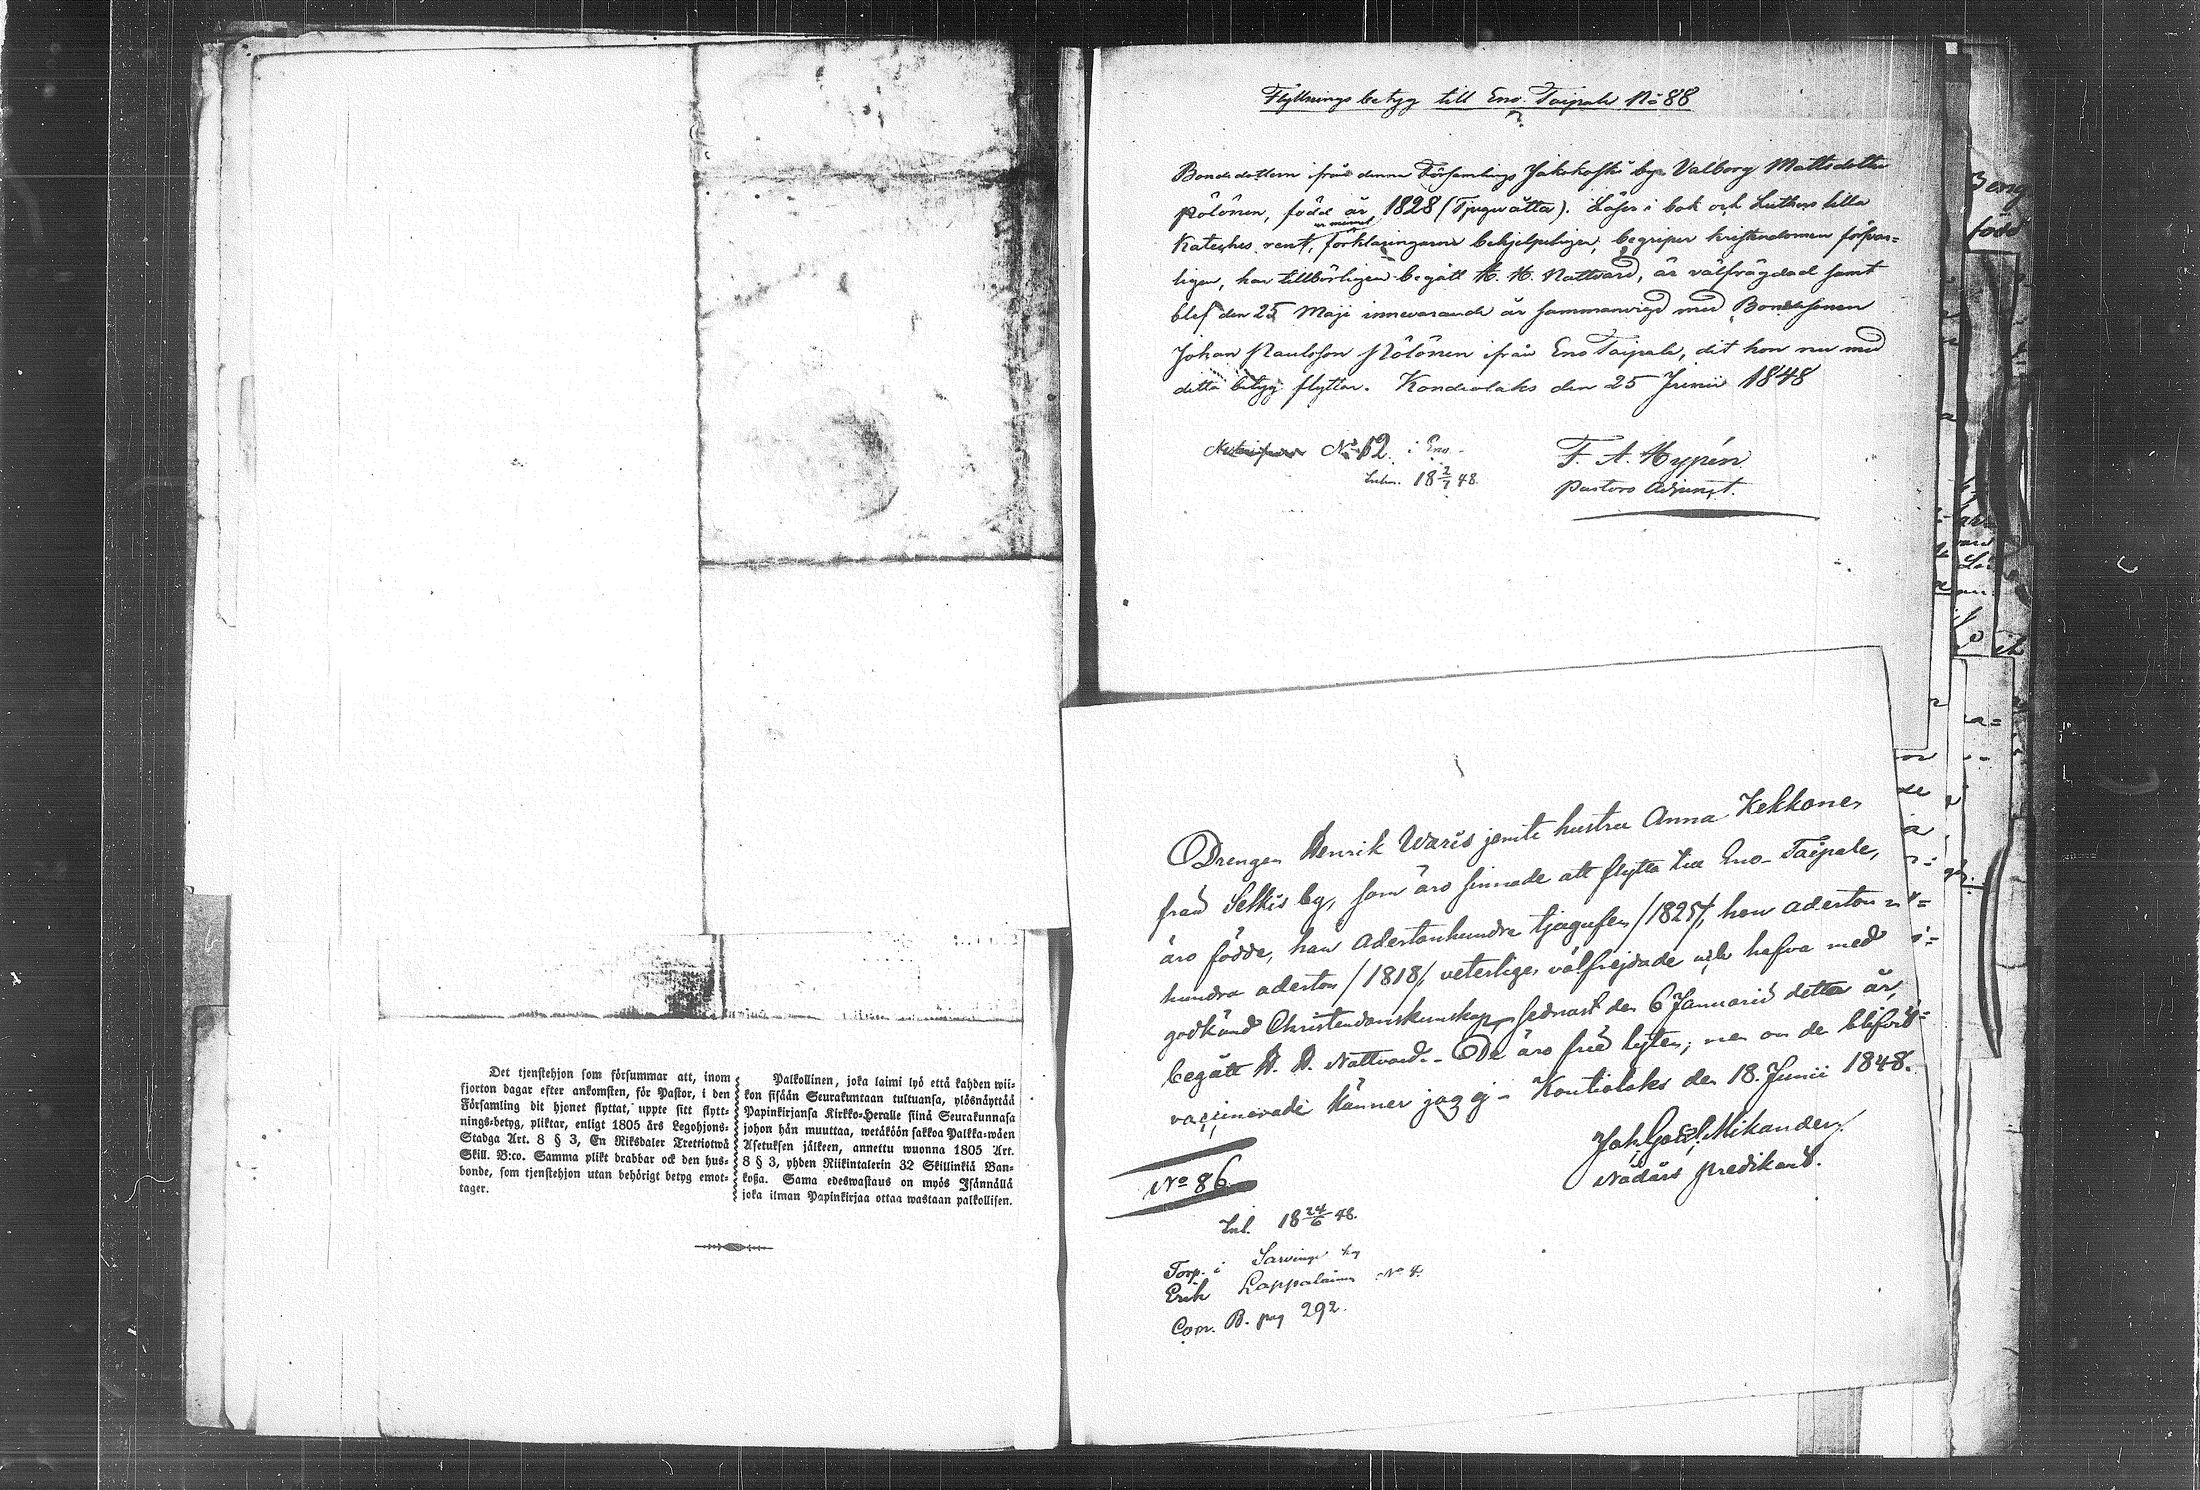 Det tjenstehjon som försummar att, inom
fjorton dagar efter ankomsten, för Pastor, i den
Församling dit hjonet flyttat, uppte sitt flytt-
nings-betyg, pliktar, enligt 1805 års Legohjons-
Stadga Art. 8 § 3, En Riksdaler Trettiotwå
Skill. B:co. Samma plikt drabbar ock den hus-
bonde, som tjenstehjon utan behörigt betyg emot-
tager.
Palkollinen, joka laimi lyö että kahden wii-
kon sisään Seurakuntaan tultuansa, ylösnäyttää
Papinkirjansa Kirkko-Heralle siinä Seurakunnasa
johon hän muuttaa, wetäköön sakkoa Palkka-wäen
Asetuksen jälkeen, annettu wuonna 1805 Art.
8 § 3, yhden Riikintalerin 32 Skillinkiä Ban-
kosa. Sama edeswastaus on myös Isännällä
joka ilman Papinkirjaa ottaa wastaan palkollisen.
Flyttnings betyg till Eno Taipale No 88
Bondedottern ifrån denna Församlings Jakokoski by Valborg Mattsdotter
Pölönen, född år 1828 (Tjuguåtta). Läser i bok och Luthers lilla
Kateches rent, förklaringarne behjelpligen, begriper kristendomen försvar-
ligen, har tillbörligen begått H. H. Nattvard, är välfrägdad samt
blef den 25 Maji innevarande år sammanvigd med Bondesonen
Johan Paulsson Pölönen ifrån Eno Taipale, dit hon nu med
detta betyg flyttar. Kondiolaks den 25 Junii 1848
No 12. i Eno
Inlem. 18 2/7 48.
F. A. Hypén
Pastors Adjunct.
Drengen Henrik Waris jemte hustru Anna Kekkonen
från Selkis by, som äro sinnade att flytta till Eno-Taipale,
äro födde, han adertonhundra tjugufem /1825/, hon aderton
hundra aderton /1818/, veterligen välfrejdade och hafva med
godkänd Christendomskunskap sednast den 6 Januarii detta år,
begått H. H. Nattvard. - De äro fria lyten; men om de blifvit
vaccinerade känner jag ej - Kontiolaks den 18. Junii 1848.
Joh. Gabl. Mikander
Nådårs predikant.
No 86
Inl. 18 24/6 48.
Torp. i Sarvinge by
Erik Lappalainen No 4.
Com. B. pag 292.